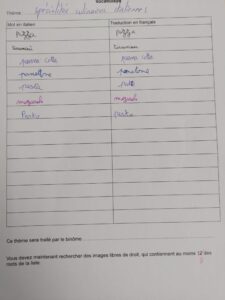 Vocabulaire
Thème : Spécialités culinaires italiennes
Mot en italien Traduction en français
Pizza Pizza
Tiramisu Tiramisu
panna cotta panna cotta
panettone panettone
Ce thème sera traité par le binôme
Vous devez maintenant rechercher des images libres de droit, qui contiennent au moins des
mots de la liste